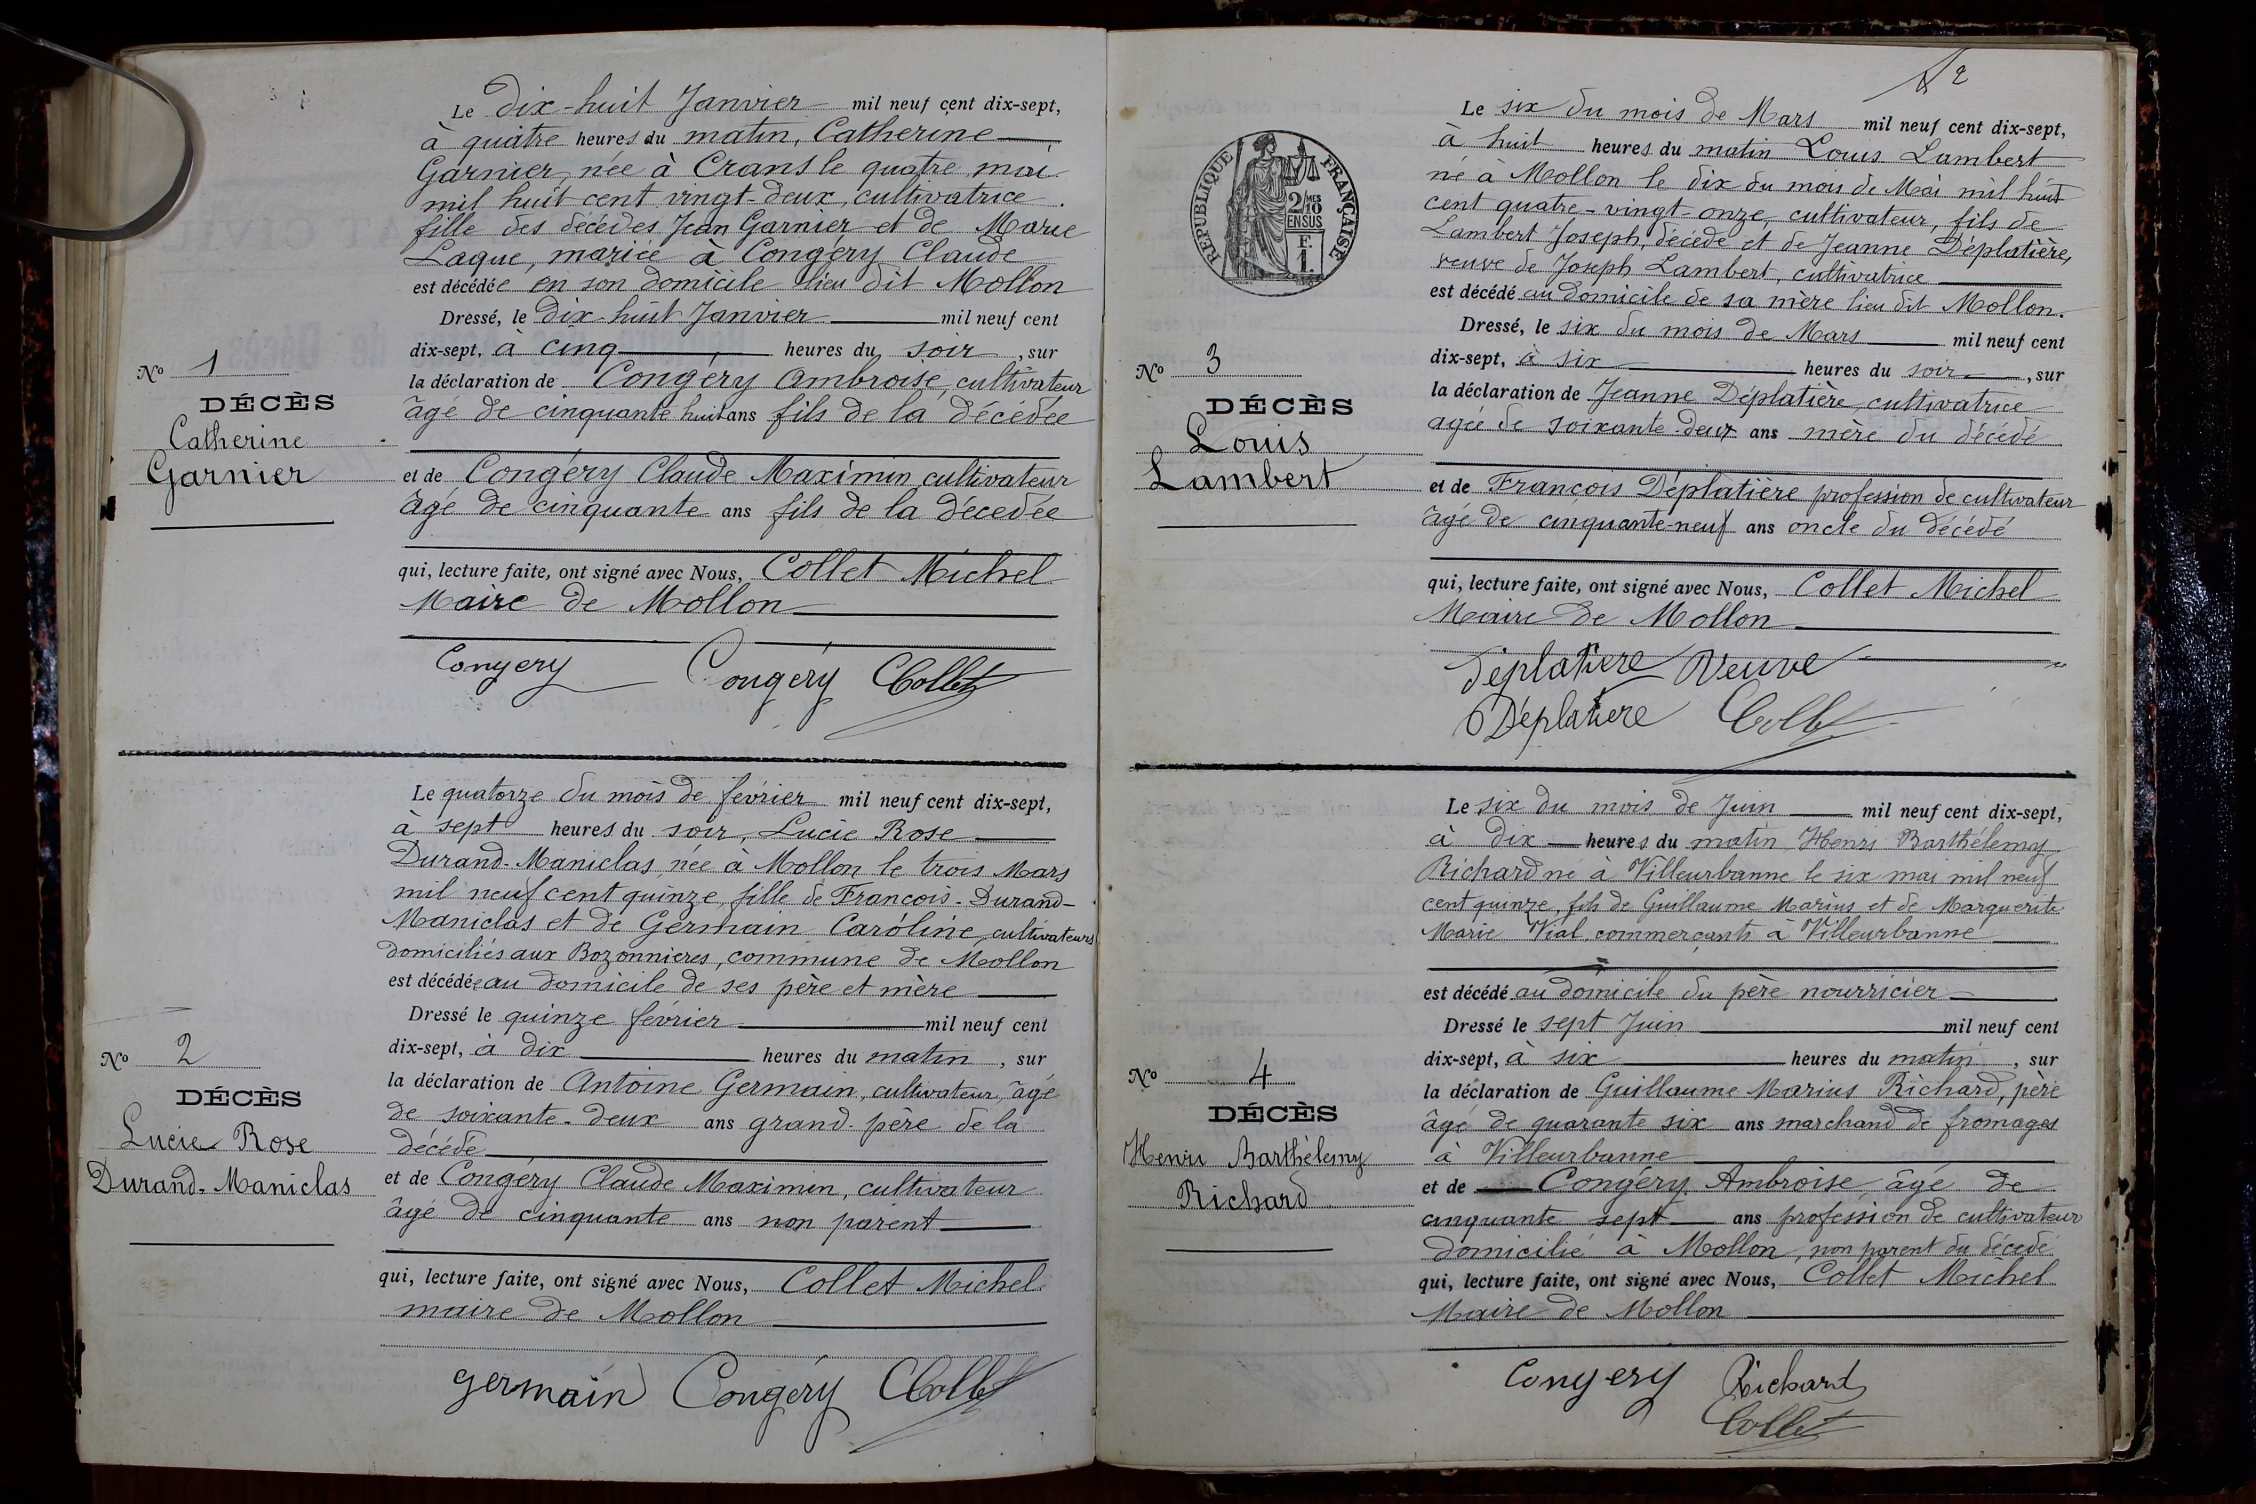 Le dix-huit Janvier mil neuf cent dix-sept,
à quatre heures du matin, Catherine
Garnier, née à Crans le quatre mai
mil huit cent vingt-deux, cultivatrice
fille des décédés Jean Garnier et de Marie
Laque, mariée à Congéry Claude
est décédée en son domicile lieu dit Mollon
Dressé, le dix-huit Janvier mil neuf cent
dix-sept, à cinq heures du soir, sur
la déclaration de Congéry Ambroise, cultivateur
âgé de cinquante huit ans fils de la décédée
et de Congéry Claude Maximin, cultivateur
âgé de cinquante ans fils de la décédée
qui, lecture faite, ont signé avec Nous, Collet Michel
Maire de Mollon
Congery Congéry Collet
No 1
DÉCÈS
Catherine
Garnier
Le quatorze du mois de février mil neuf cent dix-sept,
à sept heures du soir, Lucie Rose
Durand-Maniclas, née à Mollon le trois Mars
mil neuf cent quinze, fille de François-Durand-
Maniclas et de Germain Caroline, cultivateurs
domiciliés aux Bozonnieres, commune de Mollon
est décédée au domicile de ses père et mère
Dressé le quinze février mil neuf cent
dix-sept, à dix heures du matin, sur
la déclaration de Antoine Germain, cultivateur, âgé
de soixante-deux ans grand-père de la
décédé
et de Congéry Claude Maximin, cultivateur
âgé de cinquante ans non parent
qui, lecture faite, ont signé avec Nous, Collet Michel
maire de Mollon
germain Congéry Collet
No 2
DÉCÈS
Lucie Rose
Durand-Maniclas
2
Le six du mois de Mars mil neuf cent dix-sept,
à huit heures du matin Louis Lambert
né à Mollon le dix du mois de Mai mil huit
cent quatre-vingt-onze, cultivateur, fils de
Lambert Joseph, décédé et de Jeanne Déplatière,
veuve de Joseph Lambert, cultivatrice
est décédé au domicile de sa mère lieu dit Mollon.
Dressé, le six du mois de Mars mil neuf cent
dix-sept, à six heures du soir, sur
la déclaration de Jeanne Déplatière, cultivatrice
agée de soixante-deux ans mère du décédé
et de François Déplatière profession de cultivateur
âgé de cinquante-neuf ans oncle du décédé
qui, lecture faite, ont signé avec Nous, Collet Michel
Maire de Mollon
Déplatiere Veuve
Déplatiere Collet
RÉPUBLIQUE FRANÇAISE
2/10 MES
EN SUS
F.
1.
No 3
DÉCÈS
Louis
Lambert
Le six du mois de Juin mil neuf cent dix-sept,
à dix heures du matin Henri Barthélemy
Richard né à Villeurbanne le six mai mil neuf
cent quinze, fils de Guillaume Marius et de Marguerite
Marie Vial, commerçants à Villeurbanne
est décédé au domicile du père nourricier
Dressé le sept Juin mil neuf cent
dix-sept, à six heures du matin, sur
la déclaration de Guillaume Marius Richard, père
âgé de quarante six ans marchand de fromages
à Villeurbanne
et de Congéry Ambroise, âgé de
cinquante sept ans profession de cultivateur
domicilié à Mollon, non parent du décédé
qui, lecture faite, ont signé avec Nous, Collet Michel
Maire de Mollon
Congery Richard
Collet
No 4
DÉCÈS
Henri Barthélemy
Richard